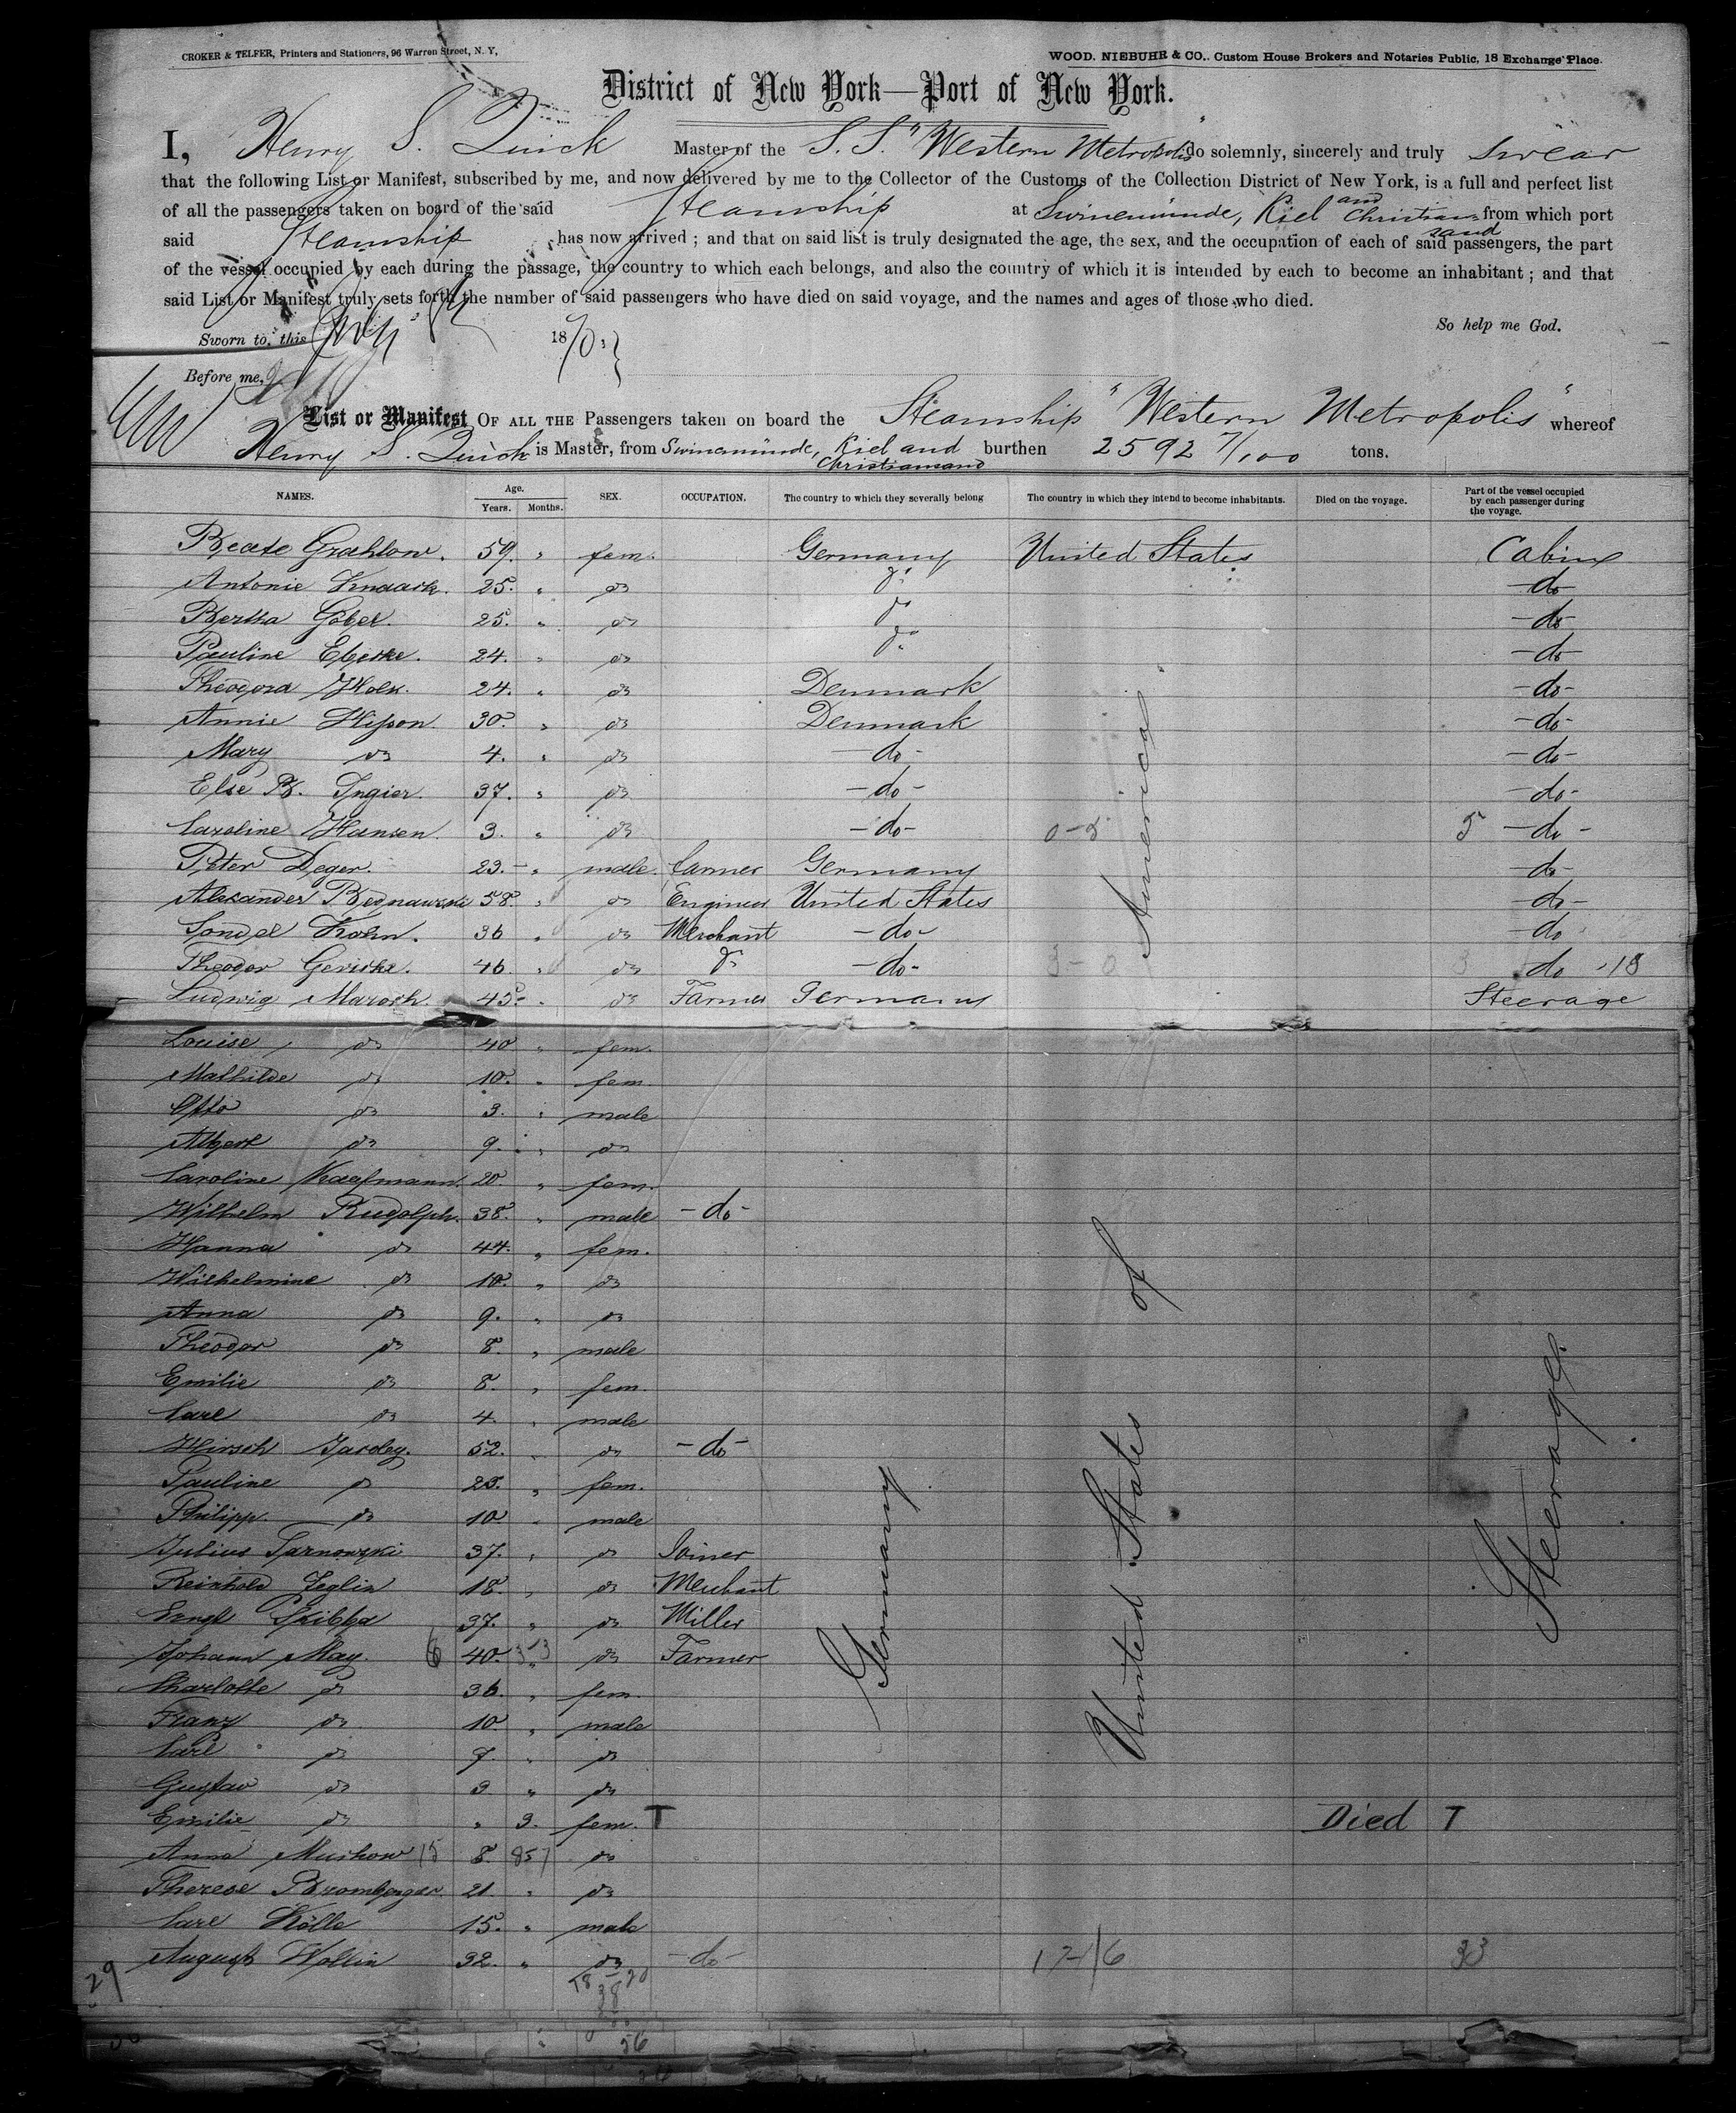 CROKER & TELFER, Printers and Stationers, 96 Warren Street, N. Y.
WOOD, NIEBUHR & CO., Custom House Brokers and Notaries Public, 18 Exchange Place.
District of New York—Port of New York.
I, Henry S. Quick Master of the S. S. "Western Metropolis" do solemnly, sincerely and truly swear
that the following List or Manifest, subscribed by me, and now delivered by me to the Collector of the Customs of the Collection District of New York, is a full and perfect list
of all the passengers taken on board of the said Steamship at Swinemünde, Kiel and Christiansand from which port
said Steamship has now arrived; and that on said list is truly designated the age, the sex, and the occupation of each of said passengers, the part
of the vessel occupied by each during the passage, the country to which each belongs, and also the country of which it is intended by each to become an inhabitant; and that
said List or Manifest truly sets forth the number of said passengers who have died on said voyage, and the names and ages of those who died.
So help me God.
Sworn to, this 1870
Before me,
List or Manifest OF ALL THE Passengers taken on board the Steamship "Western Metropolis" whereof
Henry S. Quick is Master, from Swinemünde, Kiel and Christiansand burthen 2592 7/100 tons.
NAMES. Age. Years. Months. SEX. OCCUPATION. The country to which they severally belong The country in which they intend to become inhabitants. Died on the voyage. Part of the vessel occupied by each passenger during the voyage.
Beate Grahlow. 59. " fem. Germany United States Cabin
Antonie Knaack. 25. " do do -do-
Bertha Göbel. 25. " do do -do-
Pauline 24. " do do -do-
Theodora Holk. 24. " do Denmark -do-
Annie 30. " do Denmark -do-
Mary do 4. " do -do- -do-
Else B. Ingier. 37. " do -do- -do-
Caroline Hansen. 3. " do -do- 5 -do-
Peter Deger. 23. " male. farmer Germany -do-
Alexander 58. " do Engineer United States -do-
Kohn. 36 " do Merchant -do- -do
Theodor Gericke. 46. " do do -do- 3-0 do 13
Ludwig Marosk 45. " do Farmer Germany Steerage
Louise, do 40 " fem.
Mathilde do 10. " fem.
Otto do 3. " male
Albert do 9. " do
Caroline Kaafmann 20. " fem.
Wilhelm Rudolph. 38. " male -do-
Hanna do 44. " fem.
Wilhelmine do 10. " do
Anna do 9. " do
Theodor do 8. " male
Emilie do 8. " fem.
Carl do 4. " male
Hirsch 52. " do -do-
Pauline do 23. " fem.
Philipp. do 10 " male
Julius Tarnowski 37. " do Joiner
Reinhold Zeglin 18. " do Merchant
37. " do Miller
Johann May. 6 40. " do Farmer
Charlotte do 36. " fem.
Franz do 10 " male
Carl do 7. " do
Gustav do 3 " do
Emilie do " 3. fem. T Died T
Anna Muskow 8. do
Therese Bromberger 21. " do
Carl Kölle 15. " male
August Wollin 32. " do -do- 17-16 33
Germany
United States of America
Steerage.
29
56